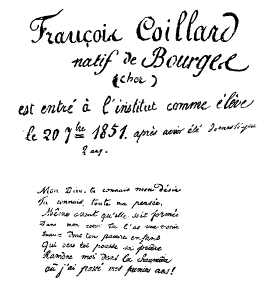 François Coillard
natif de Bourges
(Cher)
est entré à l'institut comme élève
le 20 7bre 1851. après avoir été domestique
2 ans.
Mon Dieu, tu connais mon désir
Tu connais toute ma pensée.
Même avant qu'elle soit formée
Dans mon cœur tu l'as
enfant
Qui vers toi pousse sa prière
Ramène moi dans la chaumière
où j'ai passé mes premiers ans!